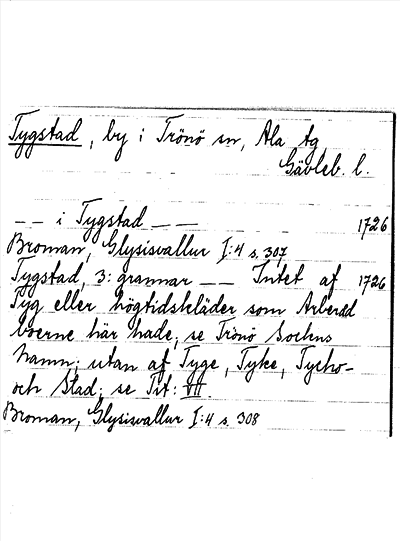 Tygstad, by i Trönö sn, Ala tg
Gävleb. l.
– – i Tygstad – – 1726
Broman, Glysisvallur I:4 s. 307
Tygstad, 3: grannar – – Intet af 1726
Tyg eller högtidskläder som
boerne här hade, se Trönö Sockns
Namn; utan af Tyge, Tyke, Tycho-
och Stad; se Tit:
Broman, Glysisvallur I:4 s. 308